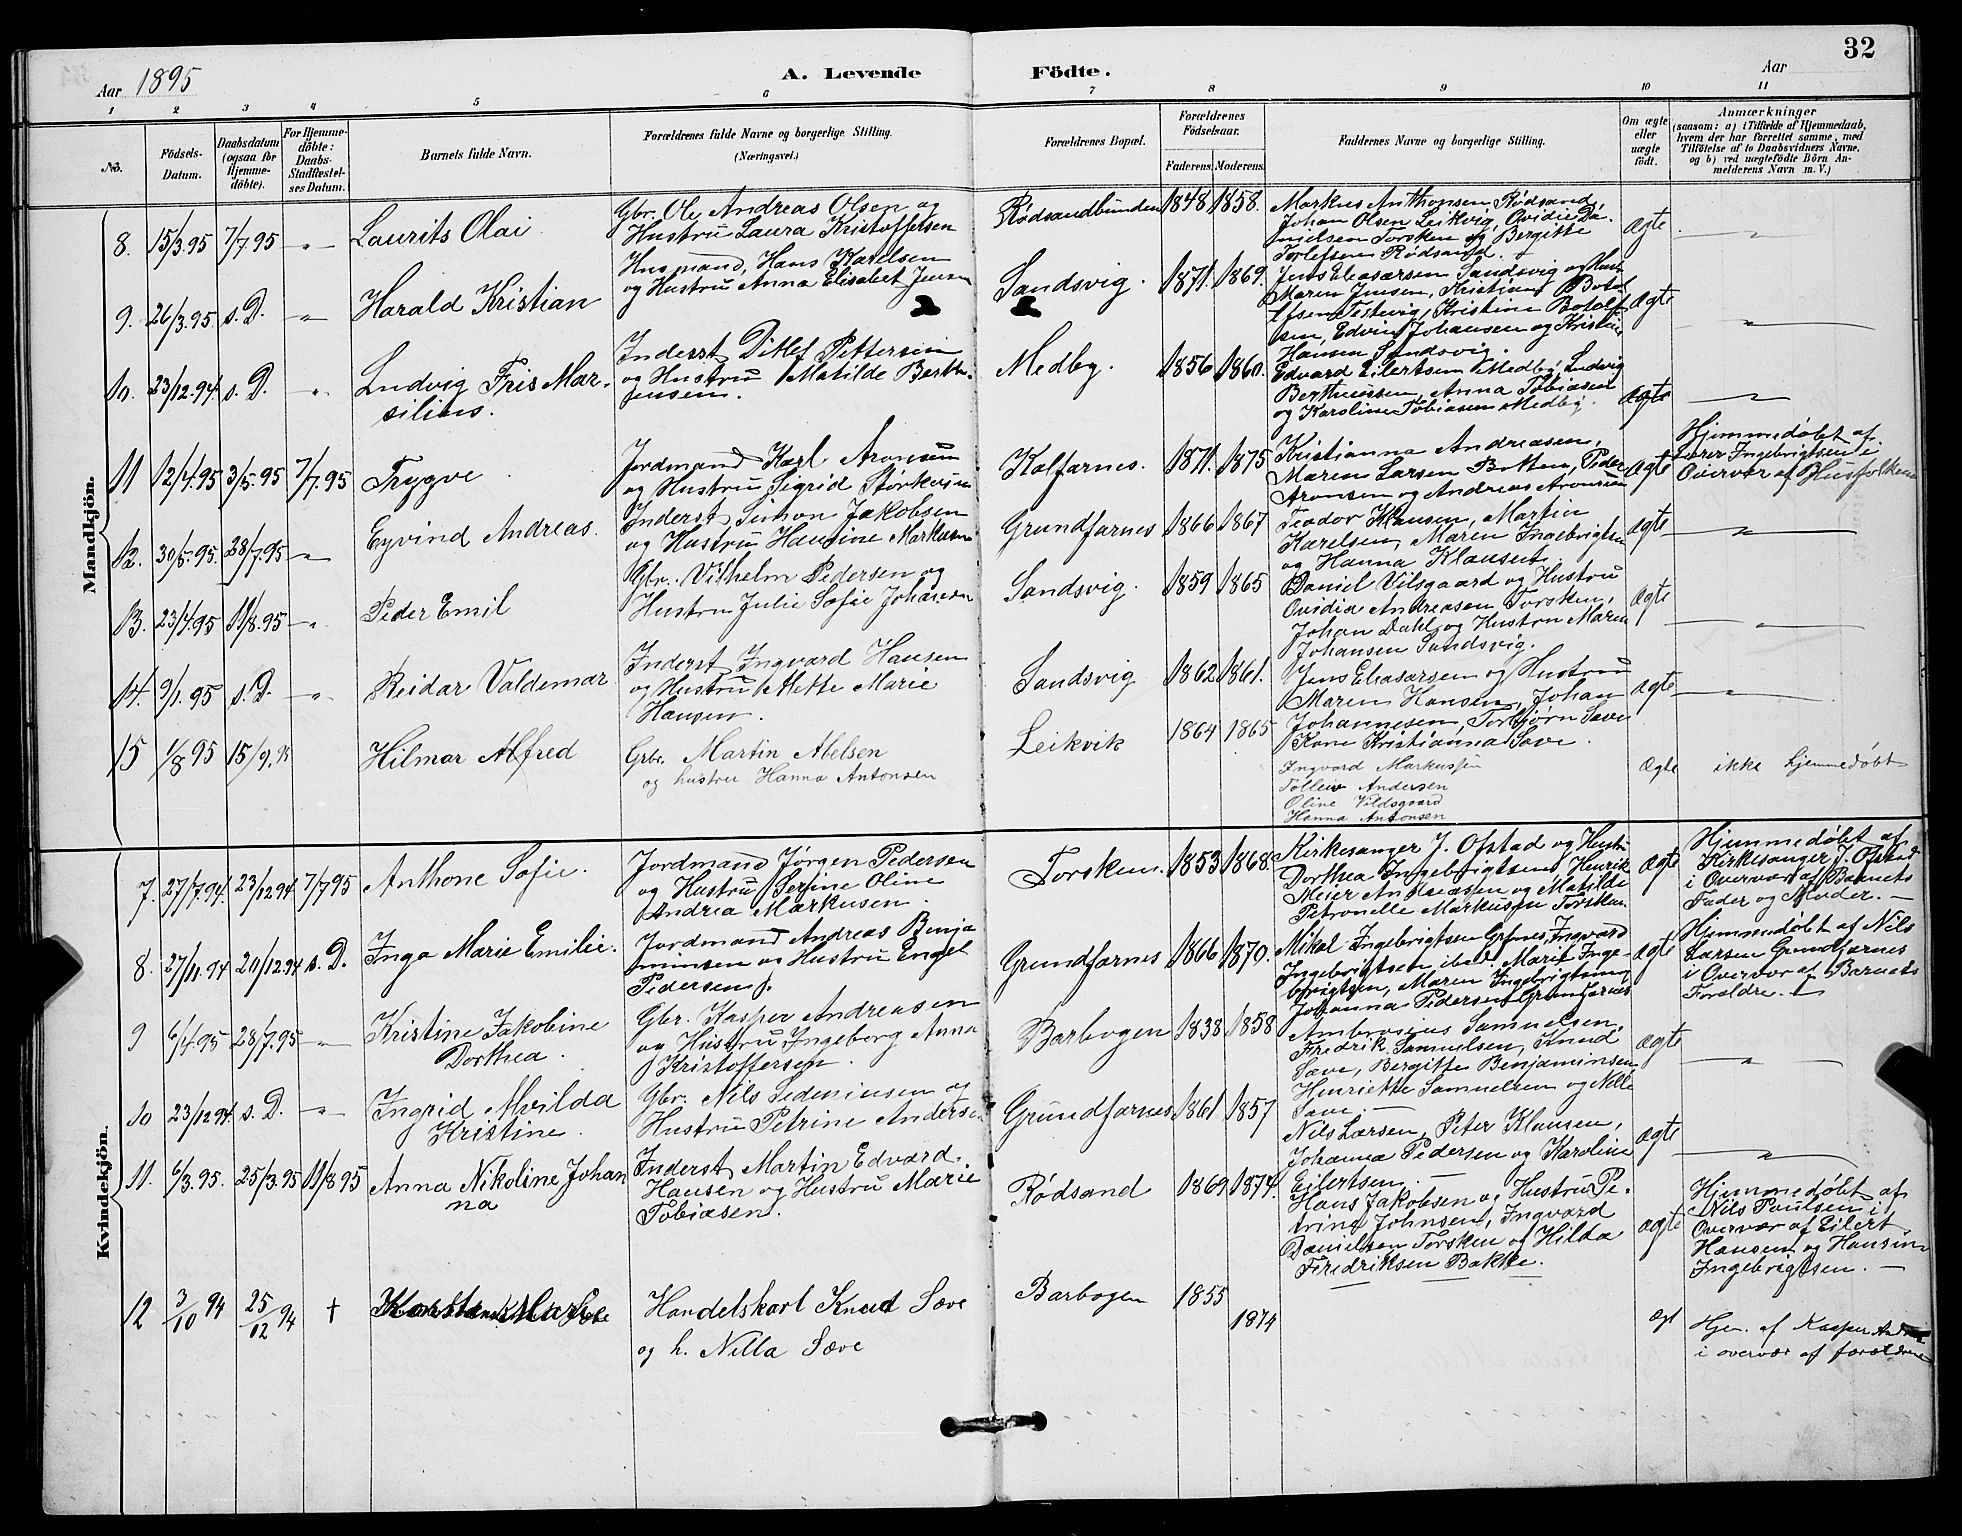 32
Aar 1895
A. Levende Födte.
Aar
1 2 3 4 5 6 7 8 9 10 11
No.
Födsels-Datum.
Daabsdatum (ogsaa for Hjemme-döbte).
For Hjemme-döbte: Daabs-Stadfæstel-ses Datum.
Barnets fulde Navn.
Forældrenes fulde Navne og borgerlige Stilling. (Næringsvei.)
Forældrenes Bopæl.
Forældrenes Födselsaar.
Faderens. Moderens.
Faddernes Navne og borgerlige Stilling.
Om ægte eller uægte födt.
Anmærkninger
(saasom: a) i Tilfælde af Hjemmedaab, hvem der har forrettet samme, med Tilföielse af to Daabsvidners Navne, og b) ved uægtefödte Börn An-melderens Navn m. V.)
Mandkjön.
8. 15/3.95 7/7.95 -"- Laurits Olai
Gbr. Ole Andreas Olsen og
Hustru Laura Kristoffersen
Rødsandbunden 1848 1858.
Markus Anthonsen, Rødsand,
Johan Olsen Leikvig, Ovidie Da-
nielsen Torsken og Bergitte
Torlefsen Rødsand.
Ægte -"-
9. 26/3.95 s. D. -"- Harald Kristian
Husmand, Hans Karelsen
og Hustru Anna Elisabet Jensen
Sandsvig. 1871. 1869.
Jens Eleasarsen Sandsvig og Hust
Maren Jensen, Kristian Botol
fsen Testevig, Kristine Botolf
sen, Edvin Johansen og Kristine
Hansen Sandsvig.
Ægte -"-
10. 23/12.94. s. D. -"- Ludvig Fris Mar-
silius.
Inderst Ditlef Pettersen
og Hustru Matilde Berth-
jensen.
Medby. 1856 1860.
Edvard Eilertsen Medby, Ludvig
Bertheussen, Anna Tobiasen
og Karoline Tobiasen Medby.
Ægte -"-
11 12/4.95 3/5.95 7/7.95 Trygve
Jordmand Karl Aronsen
og Hustru Sigrid Størkersen
Kalfarnes. 1871. 1875
Kristianna Andreasen,
Maren Larsen Botten, Peder
Aronsen og Andreas Aronsen
Ægte
Hjemmedøbt af
Lærer Ingebrigtsen i
Overvær af Husfolkene
12. 30/5.95. 28/7.95 -"- Eyvind Andreas.
Inderst Simon Jakobsen
og Hustru Hansine Markusen
Grundfarnes 1866 1867
Teodor Klausen, Martin
Karelsen, Maren Ingebrigtsen
og Hanna Klausen.
Ægte -"-
13. 23/4.95 11/8.95 -"- Peder Emil
Gbr. Vilhelm Pedersen og
Hustru Julie Sofie Johansen
Sandsvig. 1859 1865
Daniel Vilsgaard og Hustru
Ovidia Andreasen Torsken,
Johan Dahl og Hustru Maren
Johansen Sandsvig.
Ægte -"-
14. 9/1.95 s. D. -"- Reidar Valdemar
Inderst Ingvard Hansen
og Hustru Mette Marie
Hansen.
Sandsvig 1862 1861.
Jens Eleasarsen og Hustru
Maren Hansen, Johan
Johannesen, Torbjørn Save
Kone Kristianna Save.
Ægte -"-
15 1/8 95 15/9.95 Hilmar Alfred
Grbr. Martin Abelsen
og hustru Hanna Antonsen
Leikvik 1864 1865
Ingvard Markussen
Tolleiv Andersen
Oline Vildsgaard
Hanna Antonsen
Ægte ikke hjemmedøbt
Kvindekjön.
7. 27/7.94. 23/12 94 7/7 95 Anthone Sofie.
Jordmand Jørgen Pedersen
og Hustru Serine Oline
Andrea Markusen.
Torsken. 1853 1868.
Kirkesanger J. Ofstad og Hust.
Dorthea Ingebrigtsen, Henrik
Meier Andreasen og Matilde
Petronelle Markusen Torsken.
Ægte
Hjemmedøbt af
Kirkesanger J. Ofstad
i Overvær af Barnets
Fader og Moder. –
8. 27/11.94 20/12 94 s. D. Inga Marie Emilie.
Jordmand Andreas Benja
minsen og Hustru Engel
Pedersen.
Grundfarnes 1866 1870.
Mikal Ingebrigtsen Grfnes, Ingvard
Ingebrigtsen ibd. Marie Inge-
brigtsen, Maren Ingebrigtsen og
Johanna Pedersen Grundfarnes
Ægte
Hjemmedøbt af Nils
Larsen Grundfarnes
i Overvær af Barnets
Forældre.
9 6/4.95 28/7.95 -"- Kristine Jakobine
Dorthea.
Gbr. Kasper Andreasen
og Hustru Ingeborg Anna
Kristoffersen
Barbogen 1838 1858
Ambrosius Samuelsen,
Fredrik Samuelsen, Knud
Save, Bergitte Benjaminsen
Henriette Samuelsen og Nille
Save. –
Ægte -"-
10 23/12 94. s. D. -"- Ingrid Alvilda
Kristine.
Gbr. Nils Sedeniusen og
Hustru Petrine Andersen
Grundfarnes 1861 1857
Nils Larsen, Peter Klausen,
Johanna Pedersen og Karoline
Eilertsen.
Ægte -"-
11. 6/3.95. 25/3.95 11/8 95 Anna Nikoline Johan
na
Inderst Martin Edvard
Hansen og Hustru Marie
Tobiasen.
Rødsand 1869 1874.
Hans Jakobsen og Hustru Pe-
trine Johnsen, Ingvard
Danielsen Torsken og Hilda
Fredriksen Bakke.
Ægte
Hjemmedøbt af
Nils Paulsen i
Overvær af Eilert
Hansen og Hansine
Ingebrigtsen. –
12 3/10 94 25/12 94 †
Handelskarl Knud Sæve
og h. Nilla Sæve
Barbogen 1855
1874
Ægt
Hjem. af Kasper
i overvær af forældrene